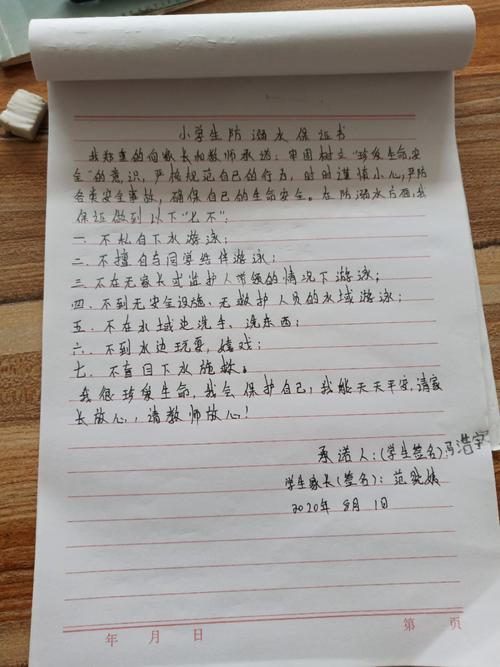 小学生防溺水保证书
我郑重的向家长和教师承诺：牢固树立“珍爱生命，安
全”的意识，严格规范自己的行为，时时谨慎小心，严防
各类安全事故，确保自己的生命安全。在防溺水方面，我
保证做到以下“七不”：
一．不私自下水游泳；
二．不擅自与同学结伴游泳；
三．不在无家长或监护人带领的情况下游泳；
四．不到无安全设施、无救护人员的水域游泳；
五．不在水域边洗手、洗东西；
六．不到水边玩耍，嬉戏；
七．不盲目下水施救。
我很珍爱生命，我会保护自己；我能天天平安，请家
长放心，请教师放心！
承诺人：(学生签名)冯浩宇
学生家长(签名)：范
2020年 8月 1日
年 月 日 第 页